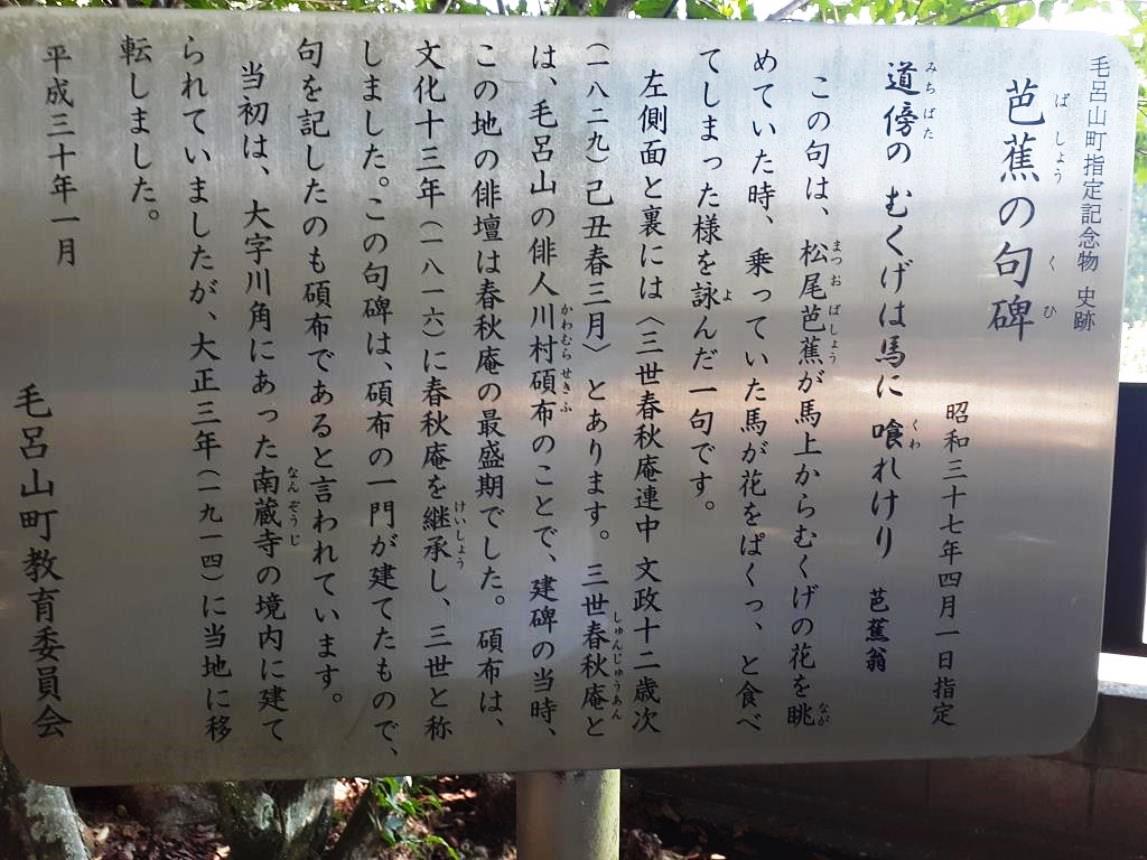 毛呂山町指定記念物 史跡
芭蕉の句碑
ばしょう くひ
昭和三十七年四月一日指定
道傍の むくげは馬に 喰れけり 芭蕉翁
みちばた くわ
この句は、松尾芭蕉が馬上からむくげの花を眺
まつおばしょう なが
めていた時、乗っていた馬が花をぱくっ、と食べ
てしまった様を詠んだ一句です。
よ
左側面と裏には〈三世春秋庵連中 文政十二歳次
(一八二九)己丑春三月〉とあります。三世春秋庵と
しゅんじゅうあん
は、毛呂山の俳人川村碩布のことで、建碑の当時、
かわむらせきふ
この地の俳壇は春秋庵の最盛期でした。碩布は、
文化十三年(一八一六)に春秋庵を継承し、三世と称
けいしょう
しました。この句碑は、碩布の一門が建てたもので、
句を記したのも碩布であると言われています。
当初は、大字川角にあった南蔵寺の境内に建て
なんぞうじ
られていましたが、大正三年(一九一四)に当地に移
転しました。
平成三十年一月
毛呂山町教育委員会